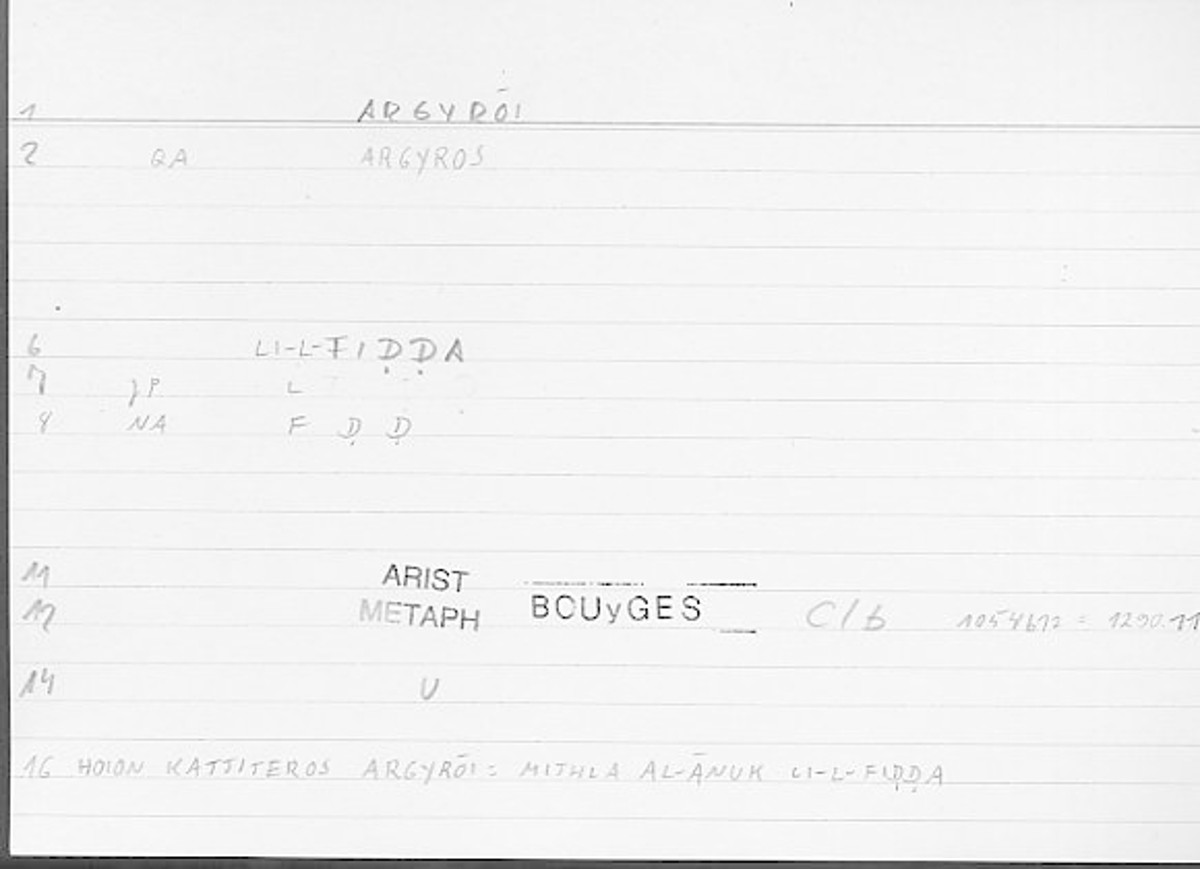 1 ARGYRŌI
2 QA ARGYROS
6 LI-L-FIḌḌA
7 L
8 NA F Ḍ Ḍ
11 ARIST
12 METAPH BOUyGES C/b
14 U
16 HOION KATTITEROS ARGYRŌI: MITHLA AL-ĀNUK LI-L-FIḌḌA